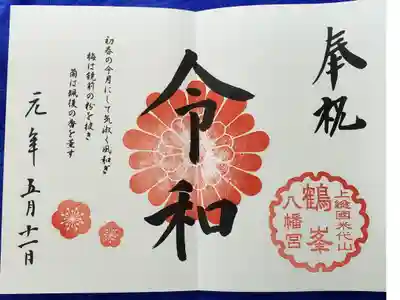 奉祝
上総国米代山
鶴峯
八幡宮
令和
初春の令月にして気淑く風和ぎ
梅は鏡前の粉を披き
蘭は珮後の香を薫す
元年五月十一日